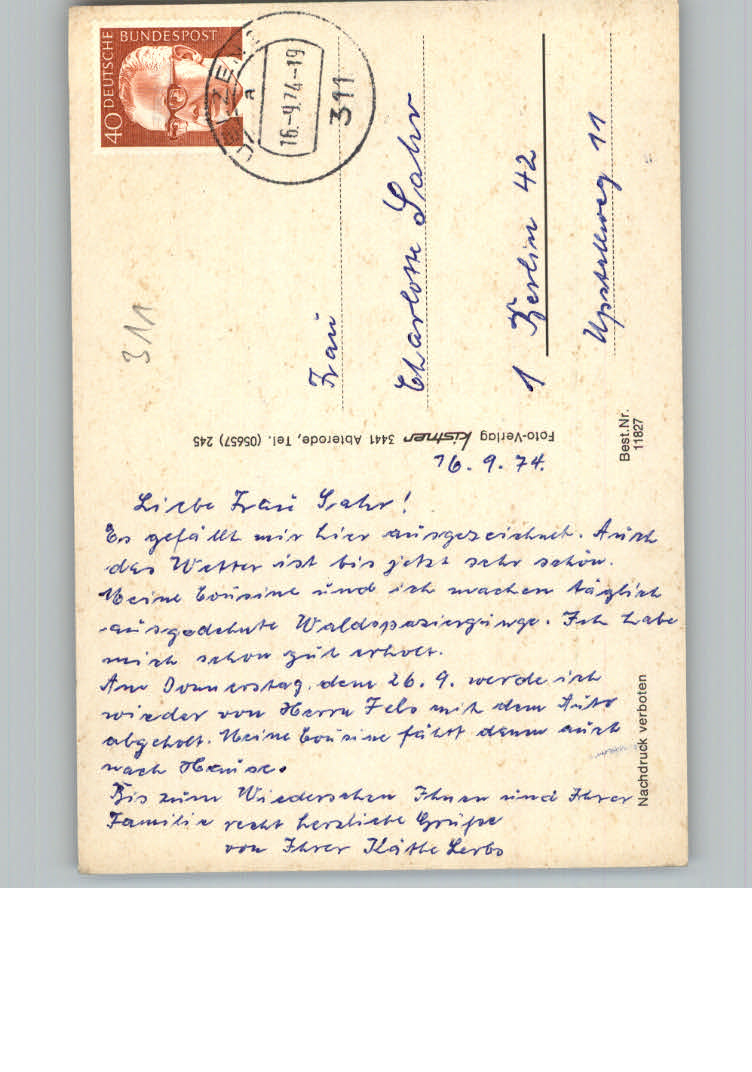 DEUTSCHE BUNDESPOST
40
UELZEN
a
16.-9.74-19
311
311
Frau
Charlotte Sahr
1 Berlin 42
Upstallweg 11
Foto-Verlag Kistner 3441 Abterode, Tel. (05657) 245
Best.Nr.
11827
16. 9. 74.
Liebe Frau Sahr!
Es gefällt mir hier ausgezeichnet. Auch
das Wetter ist bis jetzt sehr schön.
Meine Cousine und ich machen täglich
ausgedehnte Waldspaziergänge. Ich habe
mich schon gut erholt.
Am Donnerstag, dem 26. 9. werde ich
wieder von Herrn Fels mit dem Auto
abgeholt. Meine Cousine fährt dann auch
nach Hause.
Bis zum Wiedersehen Ihnen und Ihrer
Familie recht herzliche Grüße
von Ihrer Käthe Lerbs
Nachdruck verboten